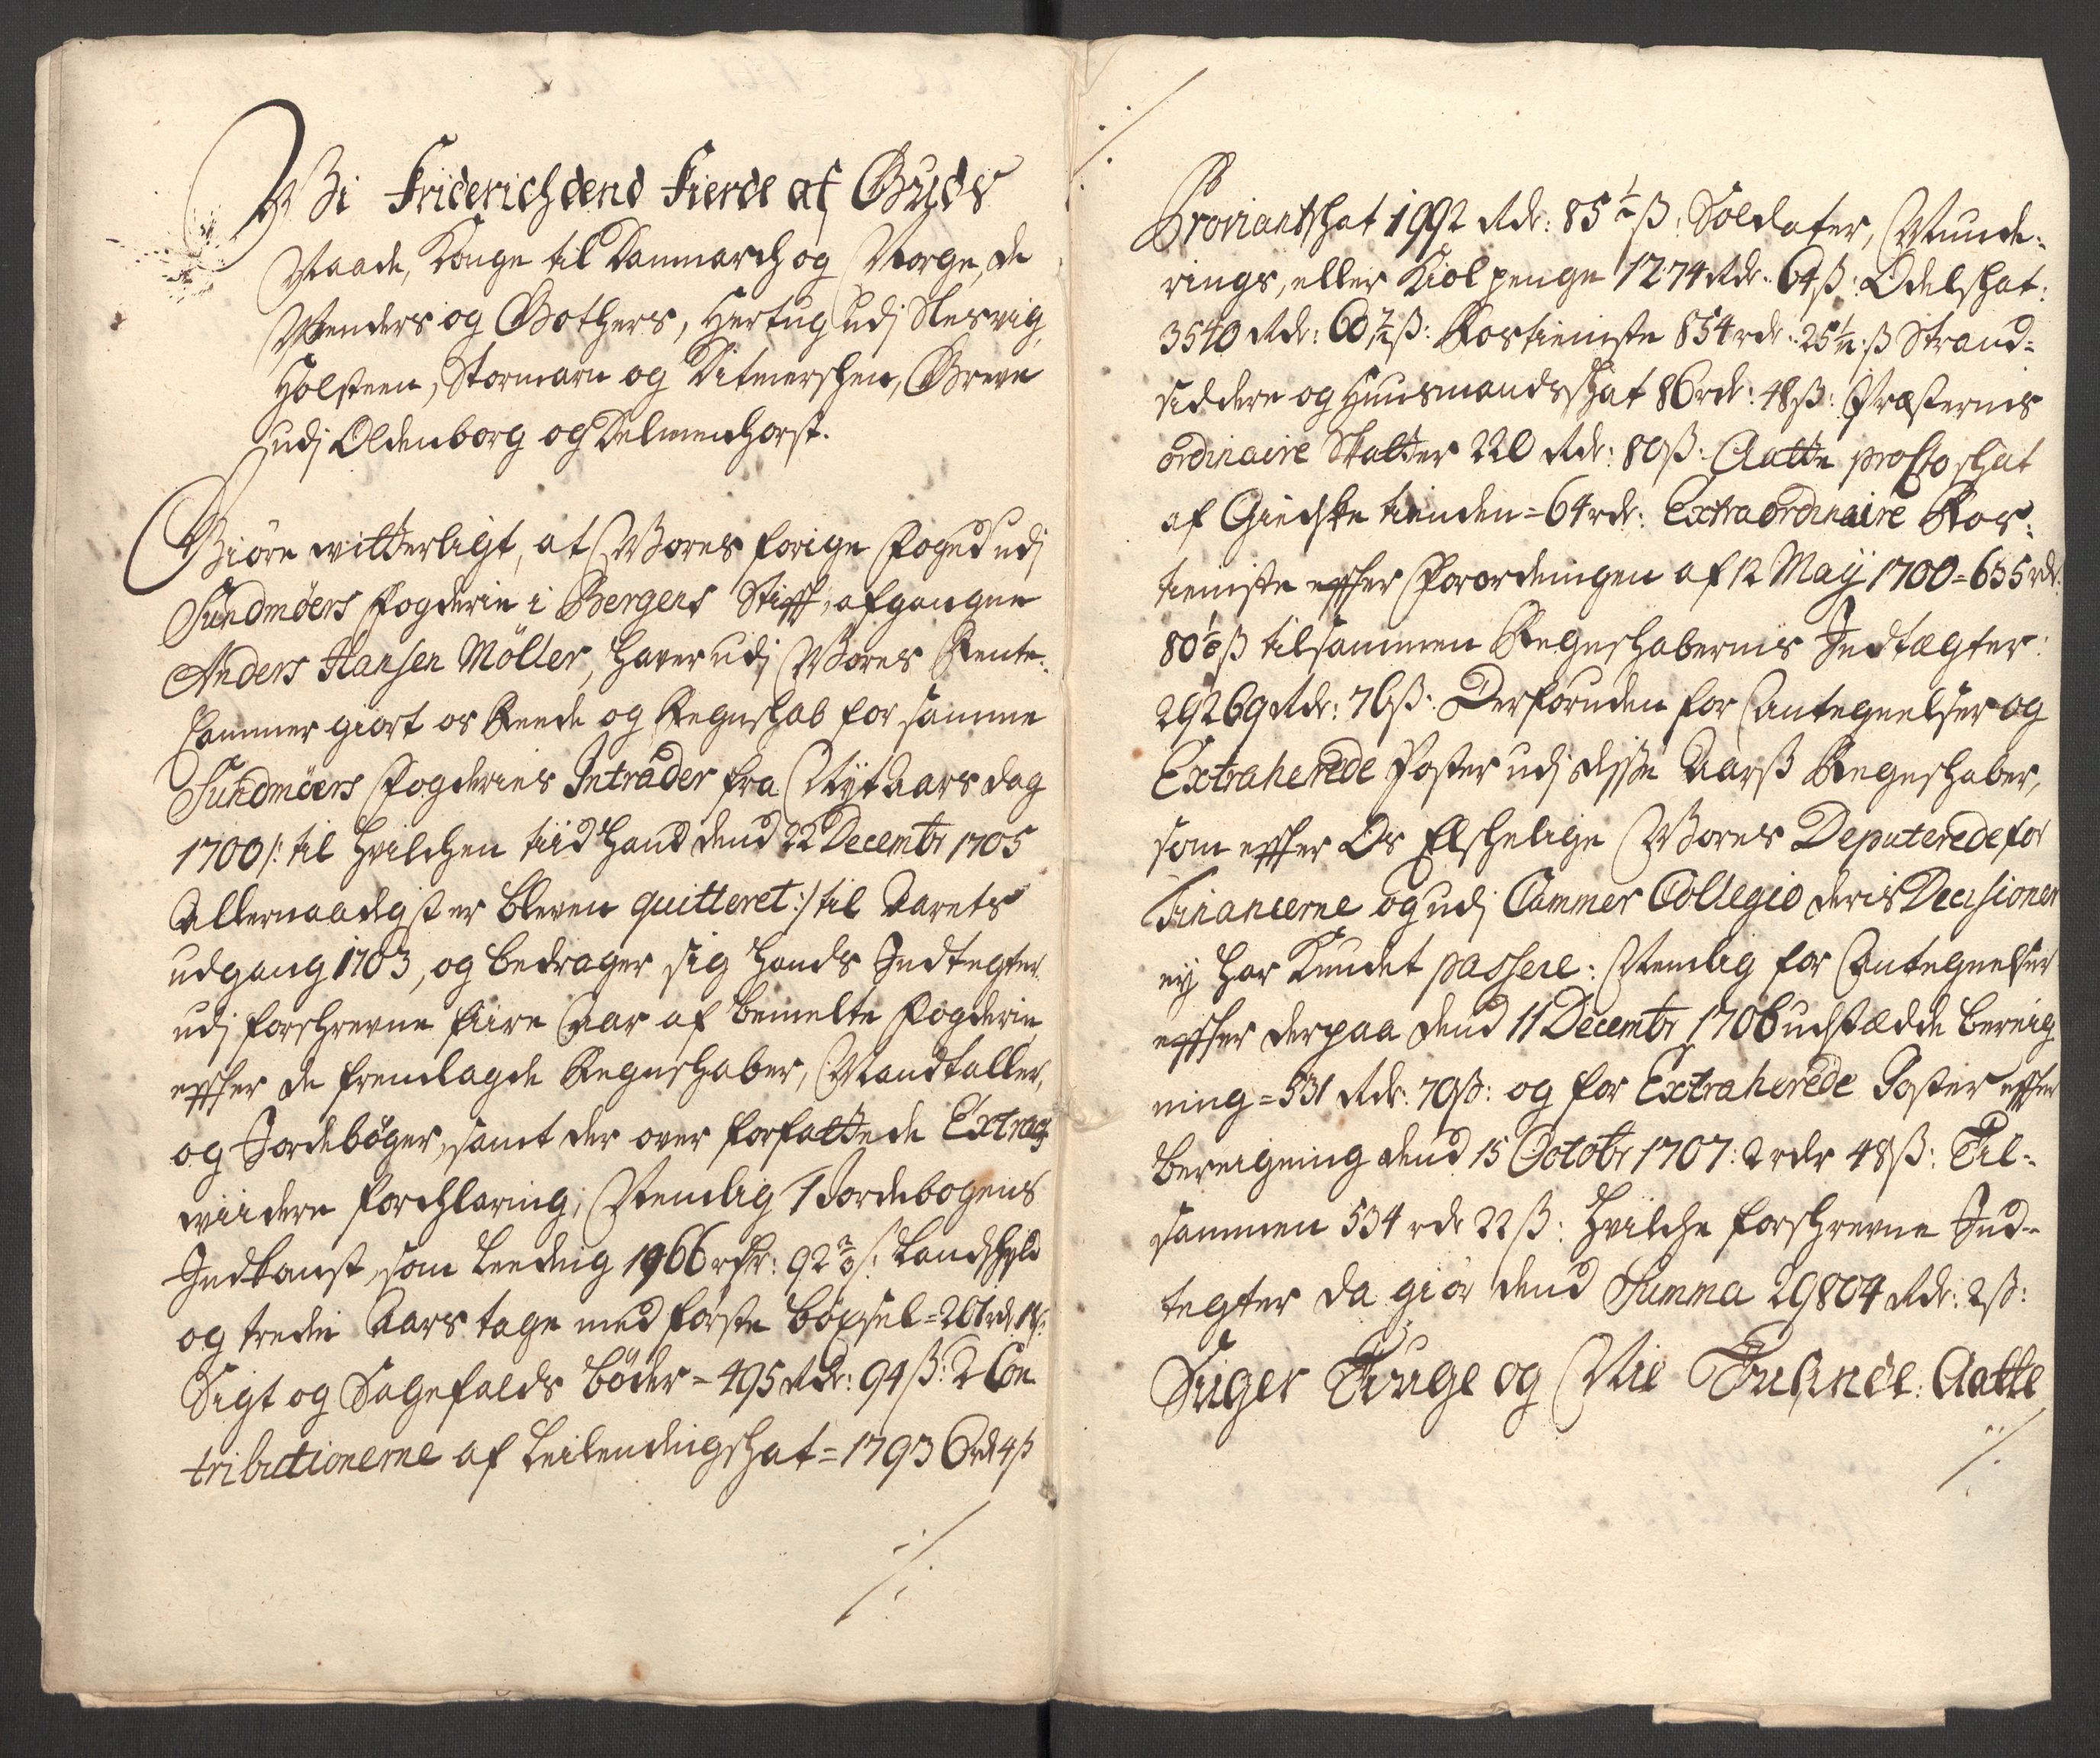 Wi Friderich dend Fierde af Guds
Naade, Konge til Danmarch og Norge, de
Wenders og Gothers, Hertug udj Slesvig,
Holsteen, Stormarn og Ditmerschen, Greve
udj Oldenborg og Delmenhorst.
Giöre witterligt, at Wores forige Foged udj
Sundmöers Fogderie i Bergens Stifft, afgangne
Anders Hansen Möller, haver udj Wores Rente-
Cammer giort os Reede og Regnschab for samme
Sundmöers Fogderies Intrader fra Nyt Aars dag
1700 /: til hvilchen tiid hand dend 22 Decembr 1705
Allernaadigst er bleven quitteret :/ til Aarets
udgang 1703, og bedrager sig hands Indtegter
udj forschrevne fiire Aar af bemelte Fogderie,
effter de fremlagde Regnschaber, Mandtaller,
og Jordebøger, samt der over forfattede Extracts
wiidere forchlaring, Nemlig 1 Jordebogens
Indkomst, som Leeding 1966 rdr: 92 ß: Landschyld
og tredie Aars tage med förste böxsel = 261 rd 1ß:
Sigt og Sagefalds böder = 495 Rdr: 94 ß: 2 Con
tributionerne af Leilendingschat = 17936 rd 4 ß
Proviantschat 1992 Rdr: 85 ½ ß: Soldater, Munde-
rings, eller Kiolpenge 1274 Rdr: 64 ß: Odelschat:
3540 Rdr: 60 ß: Rostieniste 854 rdr: 25 ß Strand-
siddere og Huusmandsschat 86 rdr: 48 ß: Præsternis
ordinaire Skatter 220 Rdr: 80 ß: Aatte pro Cto schat
af Giedske tienden = 64 rdr: Extraordinaire Ros-
tieniste effter Forordningen af 12 Maij 1700 = 655 rdr:
80 ß tilsammen Regnschabernis Indtægter:
29269 Rdr: 76 ß: Desforuden for Antegnelser og
Extraherede Poster udj disse Aarß Regnschaber,
som effter Os Elschelige Wores Deputerede for
Financerne og udj Cammer Collegio deris Decisioner
ej har kundet passere: Nemlig for Antegnelser
effter derpaa dend 11 Decembr 1706 udstædde bereig
ning = 531 Rdr: 70 ß: og for Extraherede Poster effter
bereigning dend 15 Octobr 1707: 2 rdr 48 ß: Til-
sammen 534 rdr 22 ß: hvilche forschrevne Ind-
tegter da giör dend Summa 29804 Rdr: 2 ß:
Siger Tiuge og Nie Tusinde: Aatte